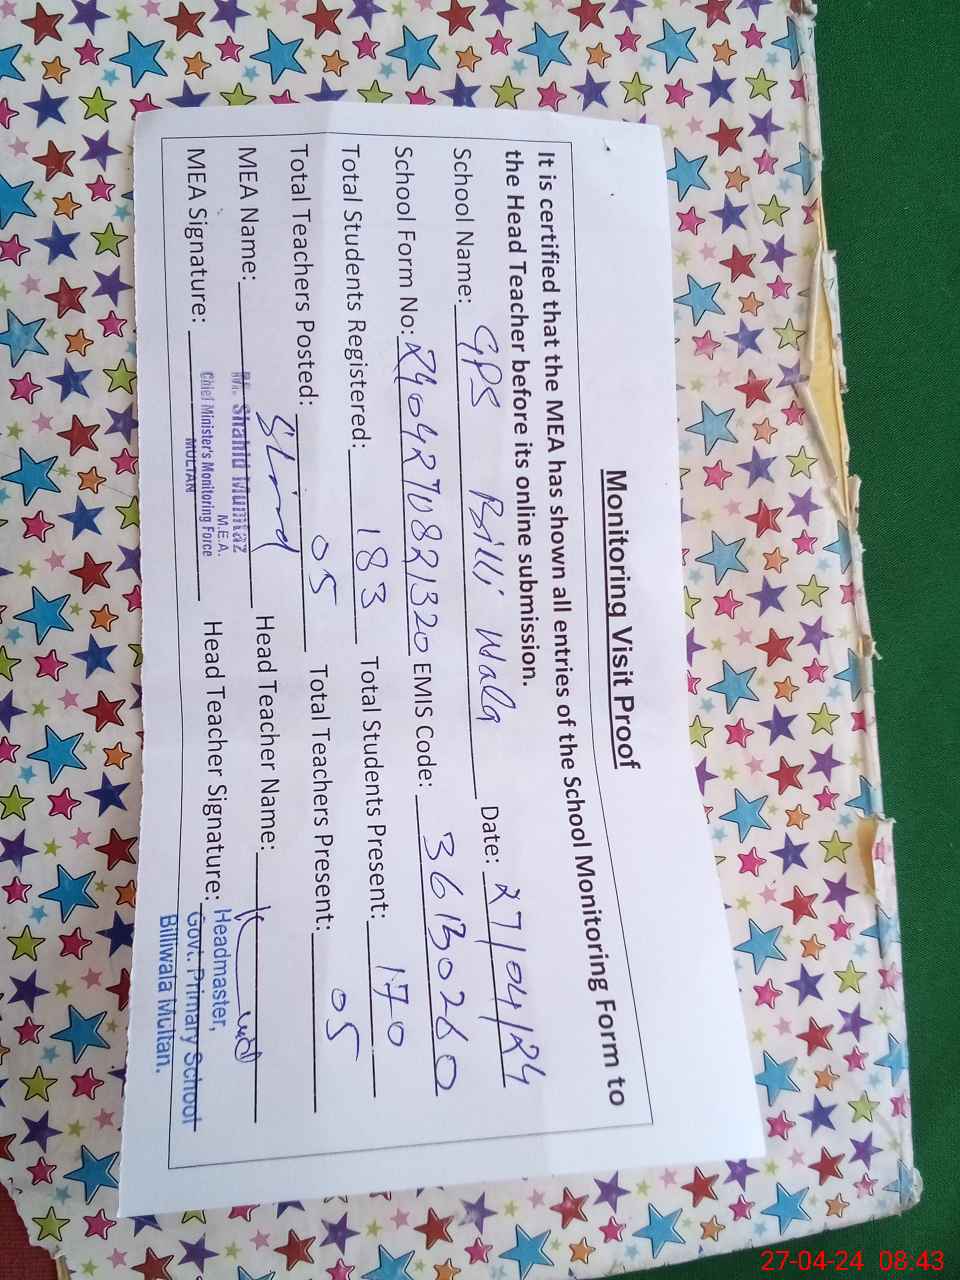 Monitoring Visit Proof
It is certified that the MEA has shown all entries of the School Monitoring Form to
the Head Teacher before its online submission.
School Name: GPS Billi Wala Date: 27/04/24
School Form No: 2404270821320 EMIS Code: 361B0260
Total Students Registered: 183 Total Students Present: 170
Total Teachers Posted: 05 Total Teachers Present: 05
MEA Name: Head Teacher Name:
M. Shahid Mumtaz
M.E.A.
Chief Minister's Monitoring Force
MULTAN
MEA Signature: Head Teacher Signature:
Headmaster,
Govt. Primary School
Billiwala Multan.
27-04-24 08:43